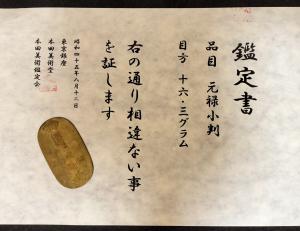 鑑定書
品目 元禄小判
目方 十六・三グラム
右の通り相違ない事
を証します
昭和四十五年八月十三日
東京銀座
本田美術堂
本田美術鑑定会